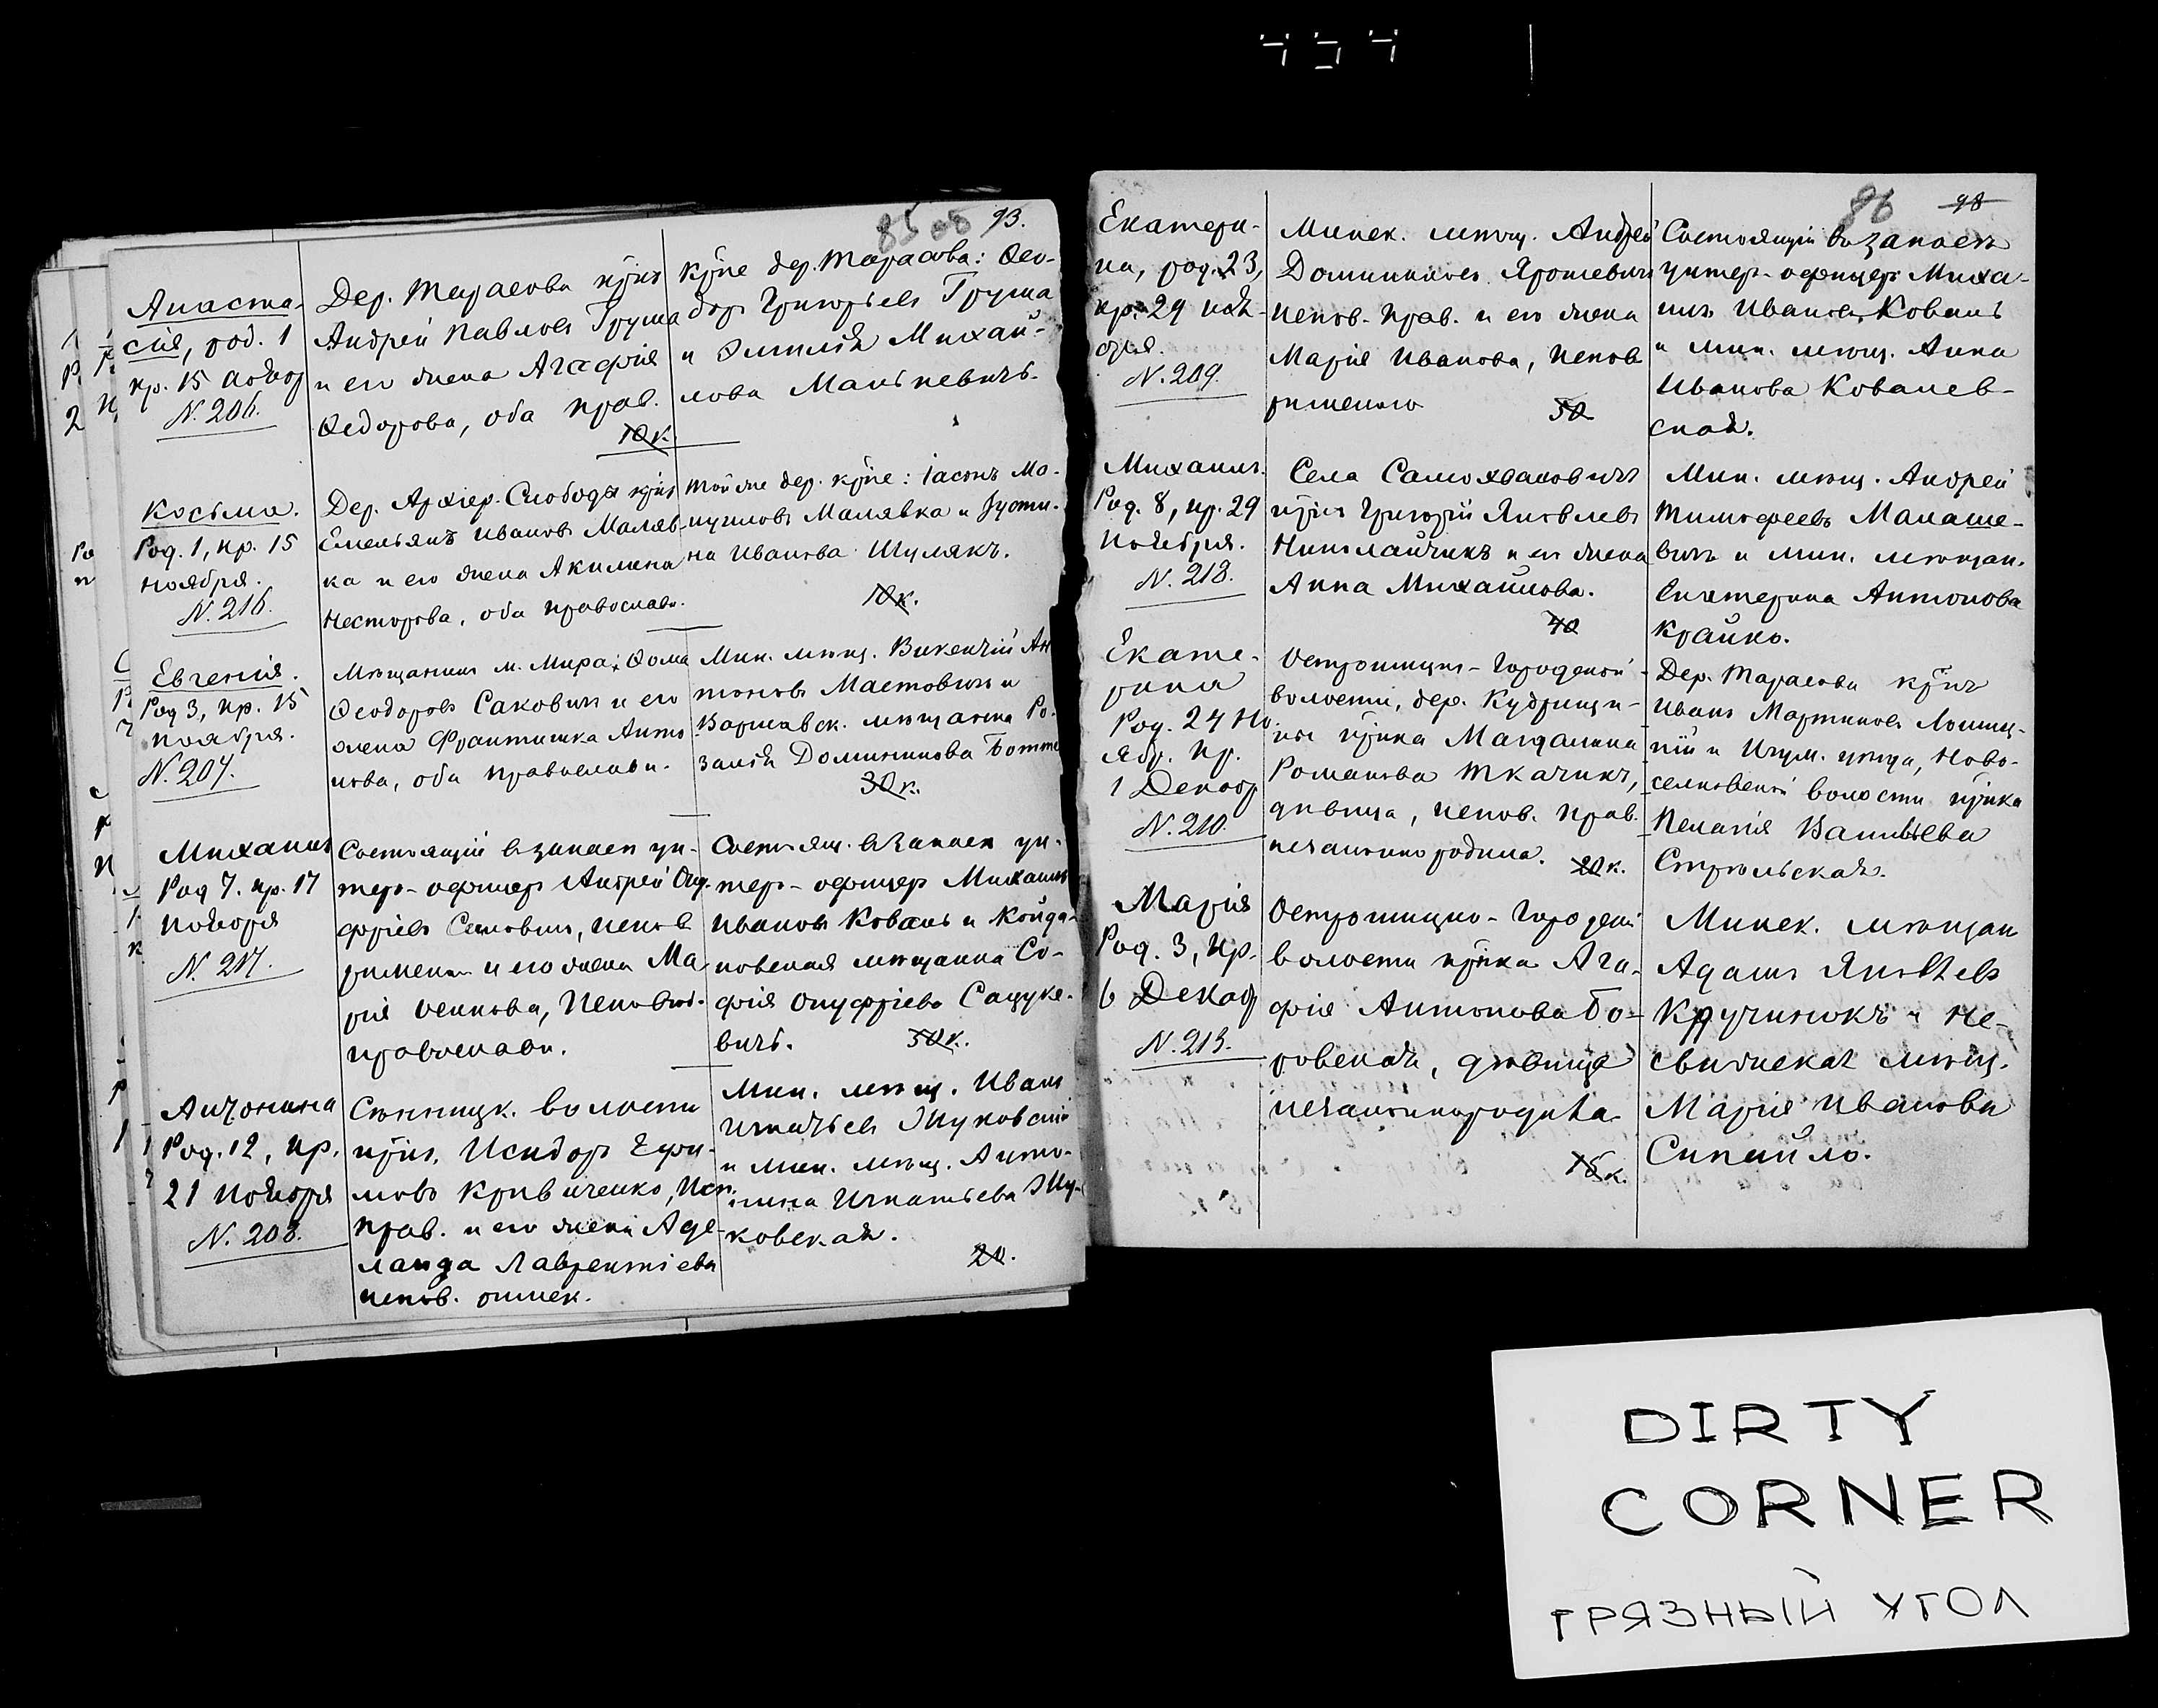 93.
Анаста-
сія, род. 1
кр. 15 ноябр
N. 206.
Дер. Тарасова крнъ
Андрей Павловъ Груша
и его жена Агафія
Ѳедорова, оба прав.
10к.
Крне дер. Тарасова: Ѳео-
доръ Григорьевъ Груша
и Эмилія Михай-
лова Манькевичъ.
Косьма.
Род. 1, кр. 15
ноября.
N. 216.
Дер. Архіер. Слободы крнъ
Емельянъ Ивановъ Маляв-
ка и его жена Акилина
Несторова, оба православ.
Той же дер. крне: Іасонъ Ма-
Малявка и Іусти-
на Ивановна Шулякъ.
10к.
Евгенія.
Род 3, кр. 15
ноября.
N. 207.
Мѣщанинъ м. Мира: Ѳома
Ѳеодоровъ Саковичъ и его
жена Франтишка Анто
нова, оба православн.
Мин. мѣщ. Викентій Ан
тоновъ Мастовичъ и
Варшавск. мѣщанка Ро-
залія Доминикова
30к.
Михаилъ
Род 7. кр. 17
ноября
N. 217.
Состоящій въ запасѣ ун-
теръ-офицеръ Андрей Ону
фріевъ неповѣ
и его жена Ма
рія Осипова, исповѣд.
православн.
Состоящ. въ запасѣ ун-
теръ-офицеръ Михаилъ
Ивановъ Коваль и Койда-
новская мѣщанка Со-
фія Онуфріева Сацуке-
вичъ.
50к.
Антонина
Род. 12, кр.
21 ноября
N. 208.
Сѣнницк. волости
крнъ. Исидоръ Ефи-
мовъ Кривиченко, исп.
прав. и его жена Аде-
лаида Лаврентіева
испов. римск.
Мин. мѣщ. Иванъ
Игнатьевъ Жуковскій
и Мин. мѣщ. Анто-
нина Игнатьева Жу-
ковская.
20.
86 98
Екатери-
на, род. 23,
кр. 29 ноя-
бря.
N. 209.
Минск. мѣщ. Андрей
Доминиковъ Ярошевичъ
испов. прав. и его жена
Марія Иванова, испов
римского
50
Состоящій въ запасѣ
унтеръ-офицеръ Миха-
илъ Ивановъ Коваль
и Мин. мѣщ. Анна
Иванова Ковалев-
ская.
Михаилъ.
Род. 8, кр. 29
ноября.
N. 218.
Села Самохваловичъ
крнъ Григорій Яковлевъ
Николайчикъ и его жена
Анна Михайлова.
40
Мин. мѣщ. Андрей
Тимофеевъ Малаше-
вичъ и Мин. мѣщан.
Екатерина Антонова
Крайко.
Екате-
рина
Род. 24 Но
ябр. кр.
1 Декабр
N. 210.
Острошицко-Городской
волости, дер. Кудрищи-
но крнка Магдалина
Романова Ткачикъ,
дѣвица, испов. прав.
незаконнородила.
20к.
Дер. Тарасова крнъ
Иванъ Мартиновъ Лошиц-
кій и Игум. уѣзда, Ново-
селковской волости крнка
Пелагія Васильева
Стрѣльская.
Марія
Род. 3, кр.
6 Декабр
N. 213.
Острошицко-Городск
волости крнка Ага-
фія Антонова Бо-
ровская, дѣвица
незаконнородила
15к.
Минск. мѣщан
Адамъ Яковлевъ
Кручинокъ и Не-
свижская мѣщ.
Марія Иванова
Синайло.
DIRTY
CORNER
ГРЯЗНЫЙ УГОЛ